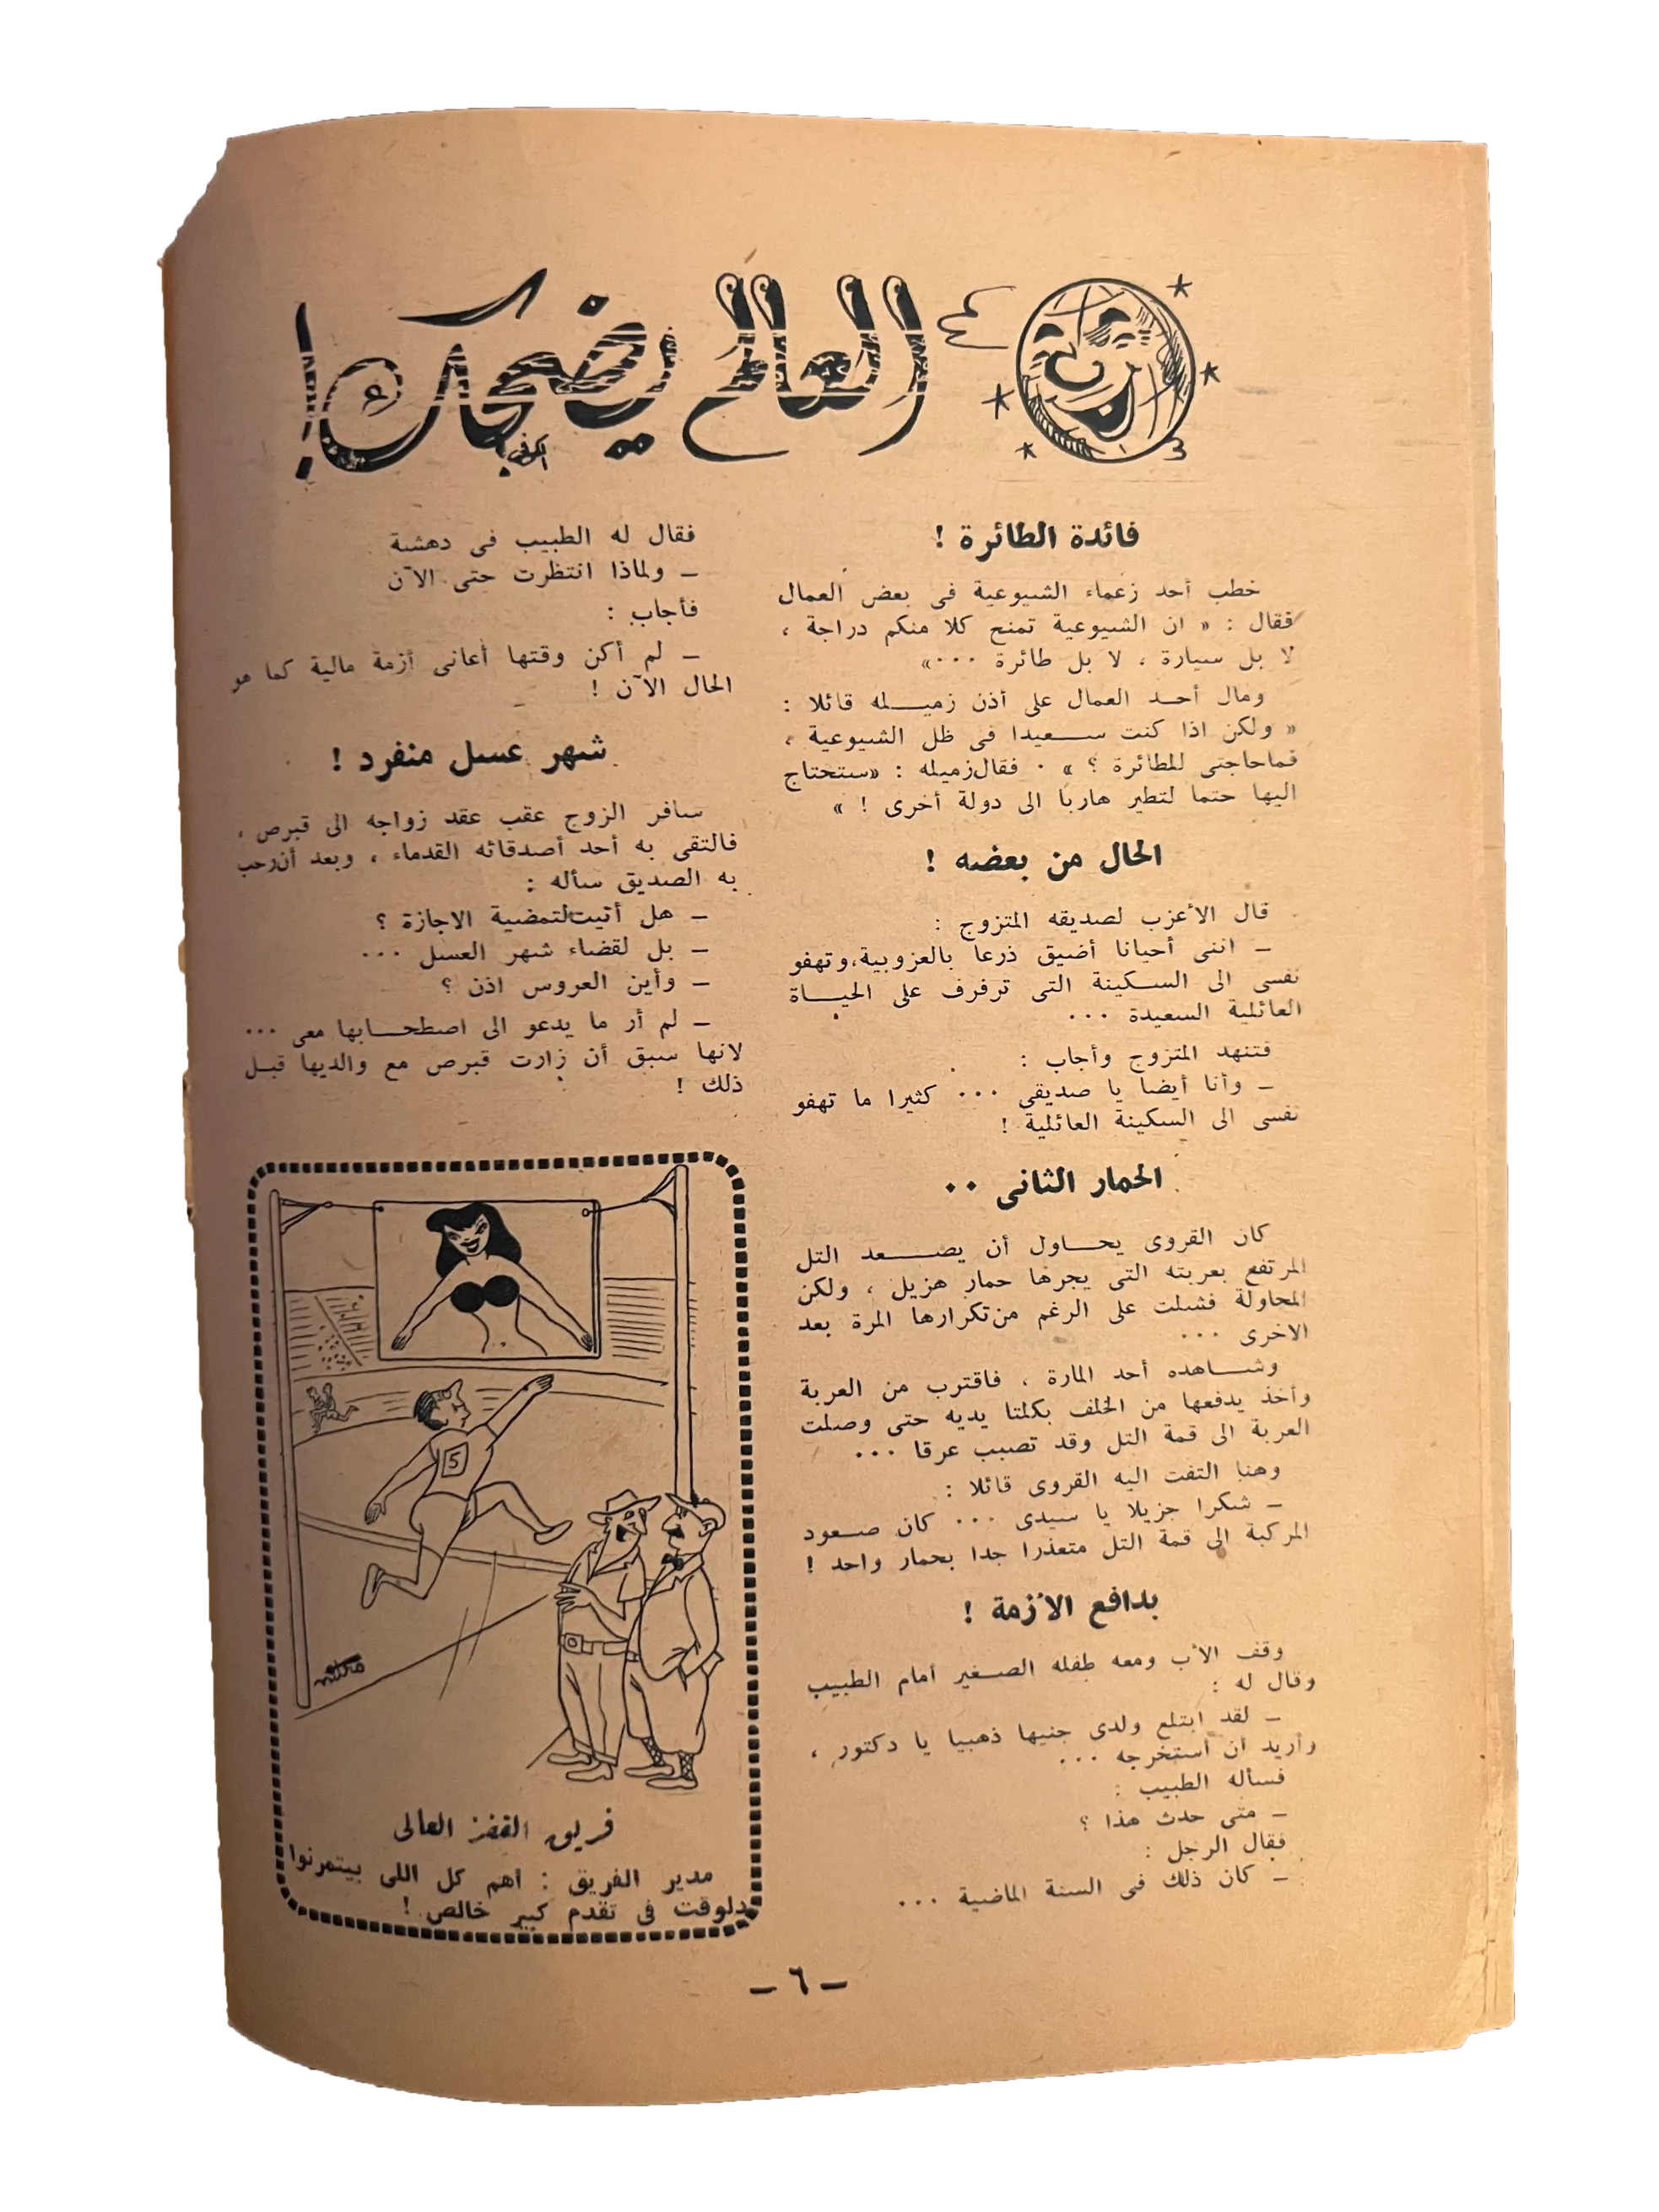 العالم يضحك!
فائدة الطائرة !
خطب أحد زعماء الشيوعية فى بعض العمال
فقال : « ان الشيوعية تمنح كلا منكم دراجة ،
لا بل سيارة ، لا بل طائرة ٠٠٠»
ومال أحد العمال على أذن زميله قائلا :
« ولكن اذا كنت سعيدا فى ظل الشيوعية ،
فماحاجتى للطائرة ؟ » ٠ فقال زميله : «ستحتاج
اليها حتما لتطير هاربا الى دولة أخرى ! »
الحال من بعضه !
قال الأعزب لصديقه المتزوج :
ـ اننى أحيانا أضيق ذرعا بالعزوبية،وتهفو
نفسى الى السكينة التى ترفرف على الحياة
العائلية السعيدة ٠٠٠
فتنهد المتزوج وأجاب :
ـ وأنا أيضا يا صديقى ٠٠٠ كثيرا ما تهفو
نفسى الى السكينة العائلية !
الحمار الثانى ٠٠
كان القروى يحاول أن يصعد التل
المرتفع بعربته التى يجرها حمار هزيل ، ولكن
المحاولة فشلت على الرغم من تكرارها المرة بعد
الاخرى ٠٠٠
وشاهده أحد المارة ، فاقترب من العربة
وأخذ يدفعها من الخلف بكلتا يديه حتى وصلت
العربة الى قمة التل وقد تصبب عرقا ٠٠٠
وهنا التفت اليه القروى قائلا :
ـ شكرا جزيلا يا سيدى ٠٠٠ كان صعود
المركبة الى قمة التل متعذرا جدا بحمار واحد !
بدافع الأزمة !
وقف الأب ومعه طفله الصغير أمام الطبيب
وقال له :
ـ لقد ابتلع ولدى جنيها ذهبيا يا دكتور ،
وأريد أن أستخرجه ٠٠٠
فسأله الطبيب :
ـ متى حدث هذا ؟
فقال الرجل :
ـ كان ذلك فى السنة الماضية ٠٠٠
فقال له الطبيب فى دهشة
ـ ولماذا انتظرت حتى الآن
فأجاب :
ـ لم أكن وقتها أعانى أزمة مالية كما هو
الحال الآن !
شهر عسل منفرد !
سافر الزوج عقب عقد زواجه الى قبرص ،
فالتقى به أحد أصدقائه القدماء ، وبعد أن رحب
به الصديق سأله :
ـ هل أتيت لتمضية الاجازة ؟
ـ بل لقضاء شهر العسل ٠٠٠
ـ وأين العروس اذن ؟
ـ لم أر ما يدعو الى اصطحابها معى ٠٠٠
لانها سبق أن زارت قبرص مع والديها قبل
ذلك !
5
فريق القفز العالى
مدير الفريق : أهم كل اللى بيتمرنوا
دلوقت فى تقدم كبير خالص !
ـ ٦ ـ